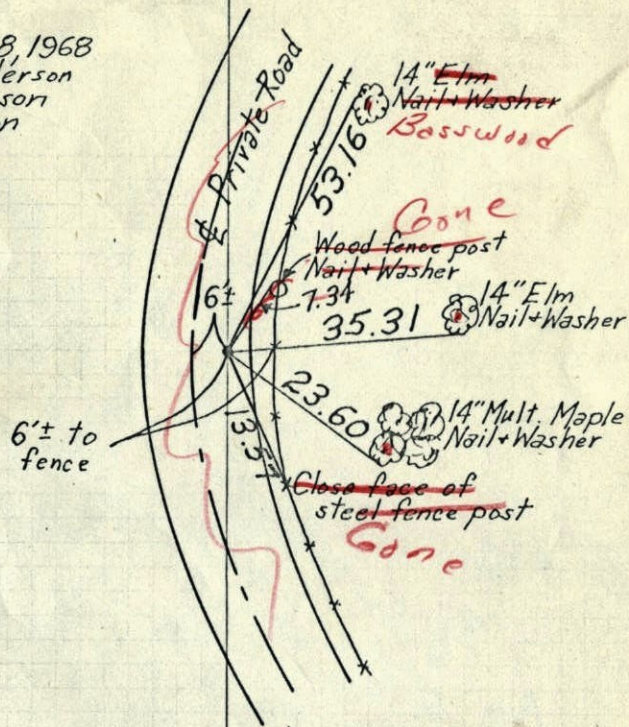 8, 1968
erson
son
n
℄ Private Road
14" Elm
Nail & Washer
Basswood
53.16
Gone
Wood fence post
Nail & Washer
7.34
6'±
14" Elm
Nail & Washer
35.31
23.60
14" Mult. Maple
Nail & Washer
13.57
6'± to
fence
Close face of
steel fence post
Gone